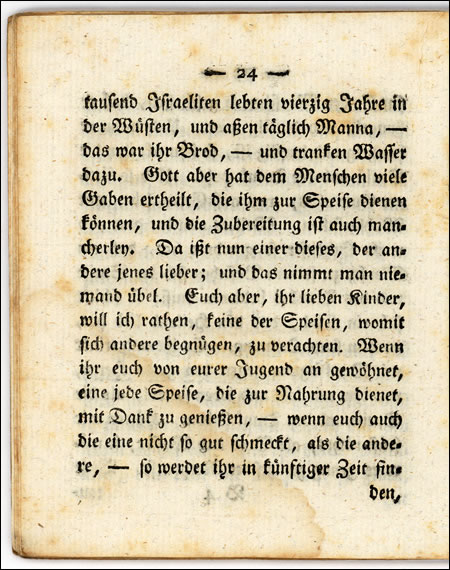 — 24 —
tausend Israeliten lebten vierzig Jahre in
der Wüsten, und aßen täglich Manna, —
das war ihr Brod, — und tranken Wasser
dazu. Gott aber hat dem Menschen viele
Gaben ertheilt, die ihm zur Speise dienen
können, und die Zubereitung ist auch man-
cherley. Da ißt nun einer dieses, der an-
dere jenes lieber; und das nimmt man nie-
mand übel. Euch aber, ihr lieben Kinder,
will ich rathen, keine der Speisen, womit
sich andere begnügen, zu verachten. Wenn
ihr euch von eurer Jugend an gewöhnet,
eine jede Speise, die zur Nahrung dienet,
mit Dank zu genießen, — wenn euch auch
die eine nicht so gut schmeckt, als die ande-
re, — so werdet ihr in künftiger Zeit fin-
den,